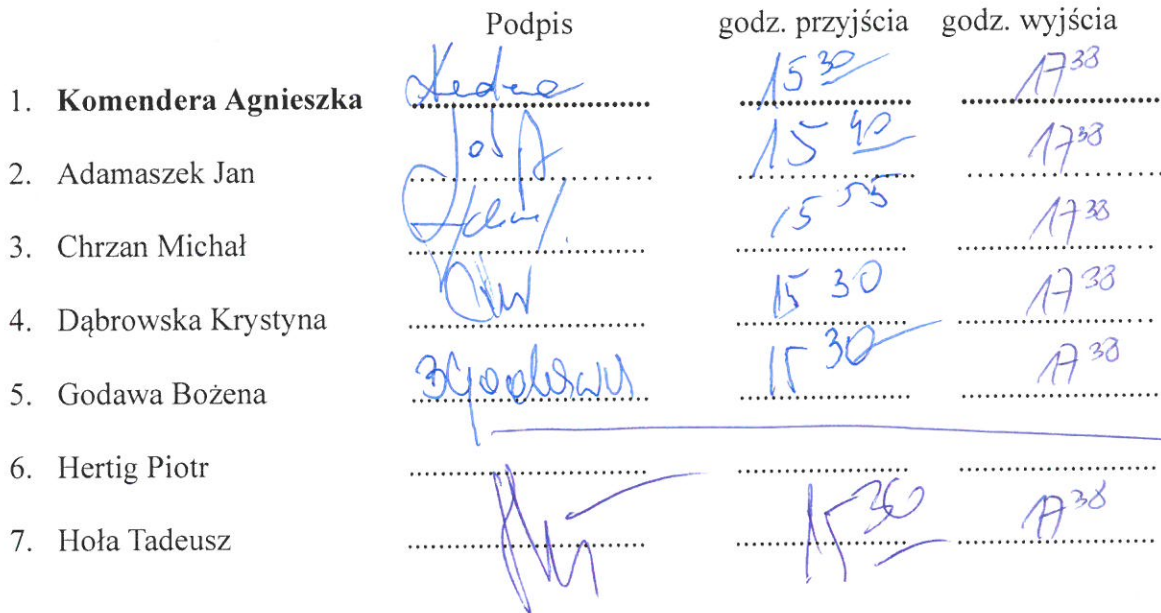 Podpis godz. przyjścia godz. wyjścia
1. Komendera Agnieszka 15 30 17 38
2. Adamaszek Jan 15 40 17 38
3. Chrzan Michał 15 55 17 38
4. Dąbrowska Krystyna 15 30 17 38
5. Godawa Bożena 15 30 17 38
6. Hertig Piotr
7. Hoła Tadeusz 15 30 17 38